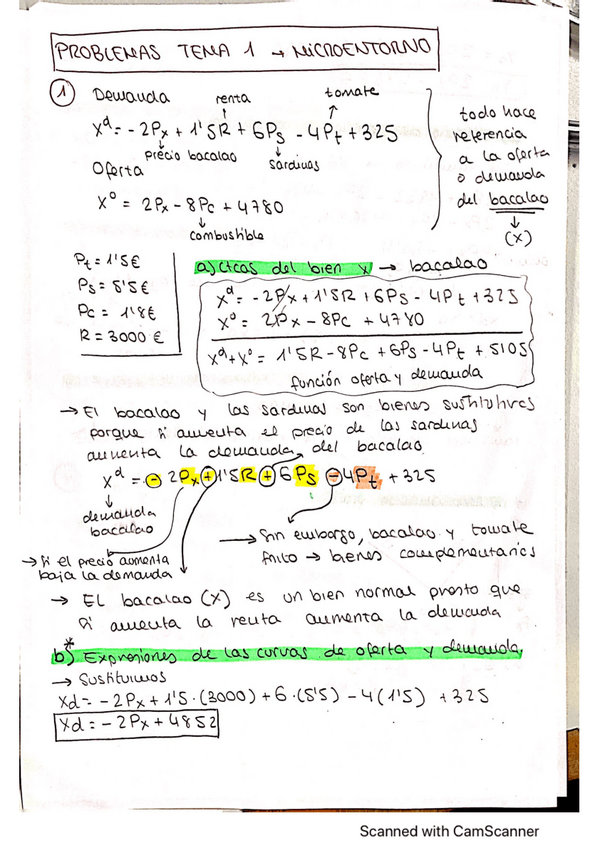 PROBLEMAS TEMA 1 → MICROENTORNO
① Demanda renta tomate
Xᵈ = - 2Px + 1'5R + 6Ps - 4Pt + 325
precio bacalao sardinas
Oferta
X⁰ = 2Px - 8Pc + 4780
combustible
todo hace
referencia
a la oferta
o demanda
del bacalao
(X)
Pt = 1'5€
Ps = 5'5€
Pc = 1'8€
R = 3000 €
a) ctcas del bien X → bacalao
Xᵈ = - 2Px + 1'5R + 6Ps - 4Pt + 325
X⁰ = 2Px - 8Pc + 4780
Xᵈ + X⁰ = 1'5R - 8Pc + 6Ps - 4Pt + 5105
función oferta y demanda
→ El bacalao y las sardinas son bienes sustitutivos
porque si aumenta el precio de las sardinas
aumenta la demanda del bacalao
Xᵈ = - 2Px + 1'5R + 6Ps - 4Pt + 325
demanda
bacalao
→ Sin embargo, bacalao y tomate
frito → bienes complementarios
→ Si el precio aumenta
baja la demanda
→ El bacalao (X) es un bien normal puesto que
si aumenta la renta aumenta la demanda
*
b) Expresiones de las curvas de oferta y demanda
→ Sustituimos
Xd = - 2Px + 1'5 · (3000) + 6 · (5'5) - 4(1'5) + 325
Xd = - 2Px + 4852
Scanned with CamScanner